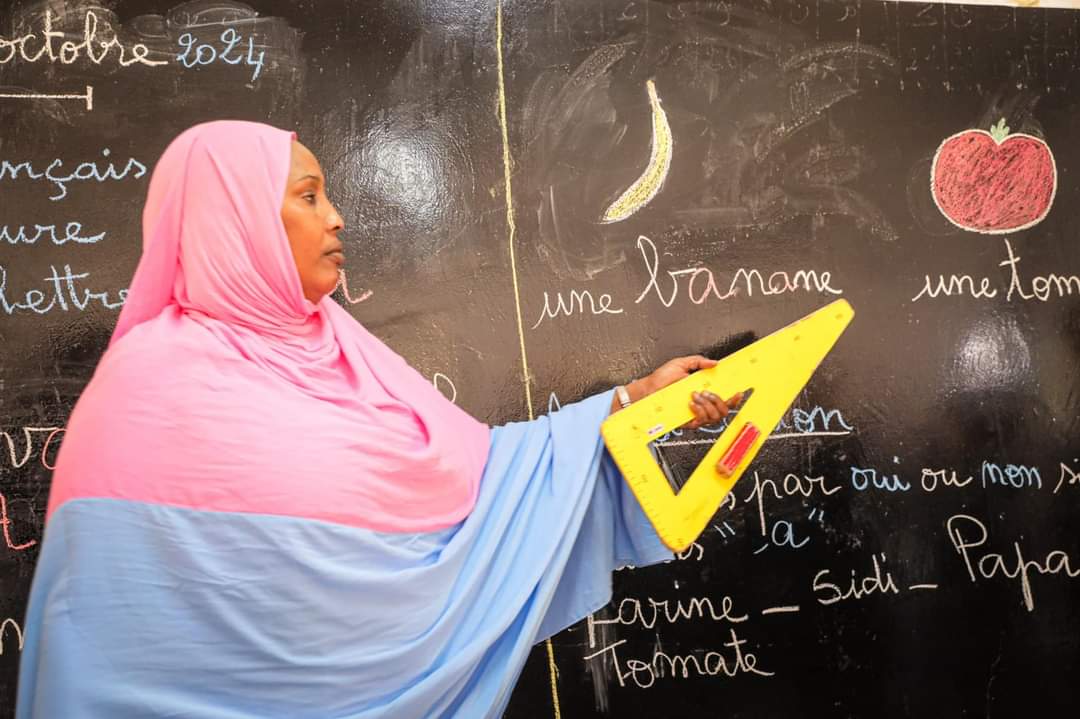 octobre 2024
nçais
ure
lettre
une banane
une tom
par oui ou non si
"a"
Farine - Sidi - Papa
Tomate